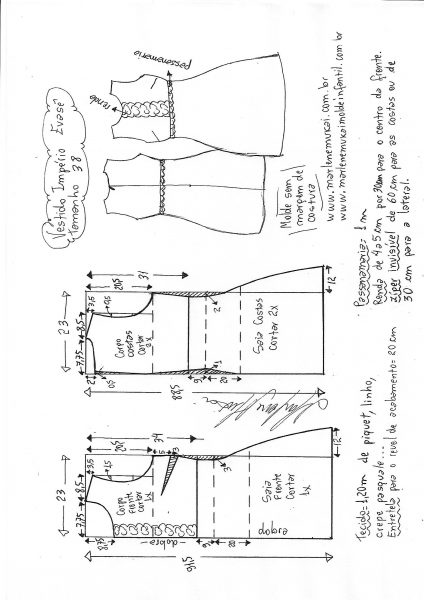 Vestido Império Evasê
Tamanho 38
renda
passamanaria
Molde sem
margem de
costura
www.marlenemukai.com.br
www.marlenemukaimoldeinfantil.com.br
23
7,75
8,5
3,5
20,5
31
9,5
2
0,5
Corpo
costas
cortar
2x
2
1
9,5
20
Saia Costas
Cortar 2x
12
88,5
23
7,75
8,5
3,5
20,5
34
1,5
8,75
5
3
Corpo
frente
cortar
1x
dobra
3
20
Saia
Frente
Cortar
1x
dobra
12
91,5
Passamanaria= 1 m
Renda de 4 a 5 cm por 30cm para o centro da frente.
Zíper invisível de 60 cm para as costas ou de
30 cm para a lateral.
Tecido= 1,20m de piquet, linho,
crepe pasquale...
Entretela para o revel de acabamento= 20 cm